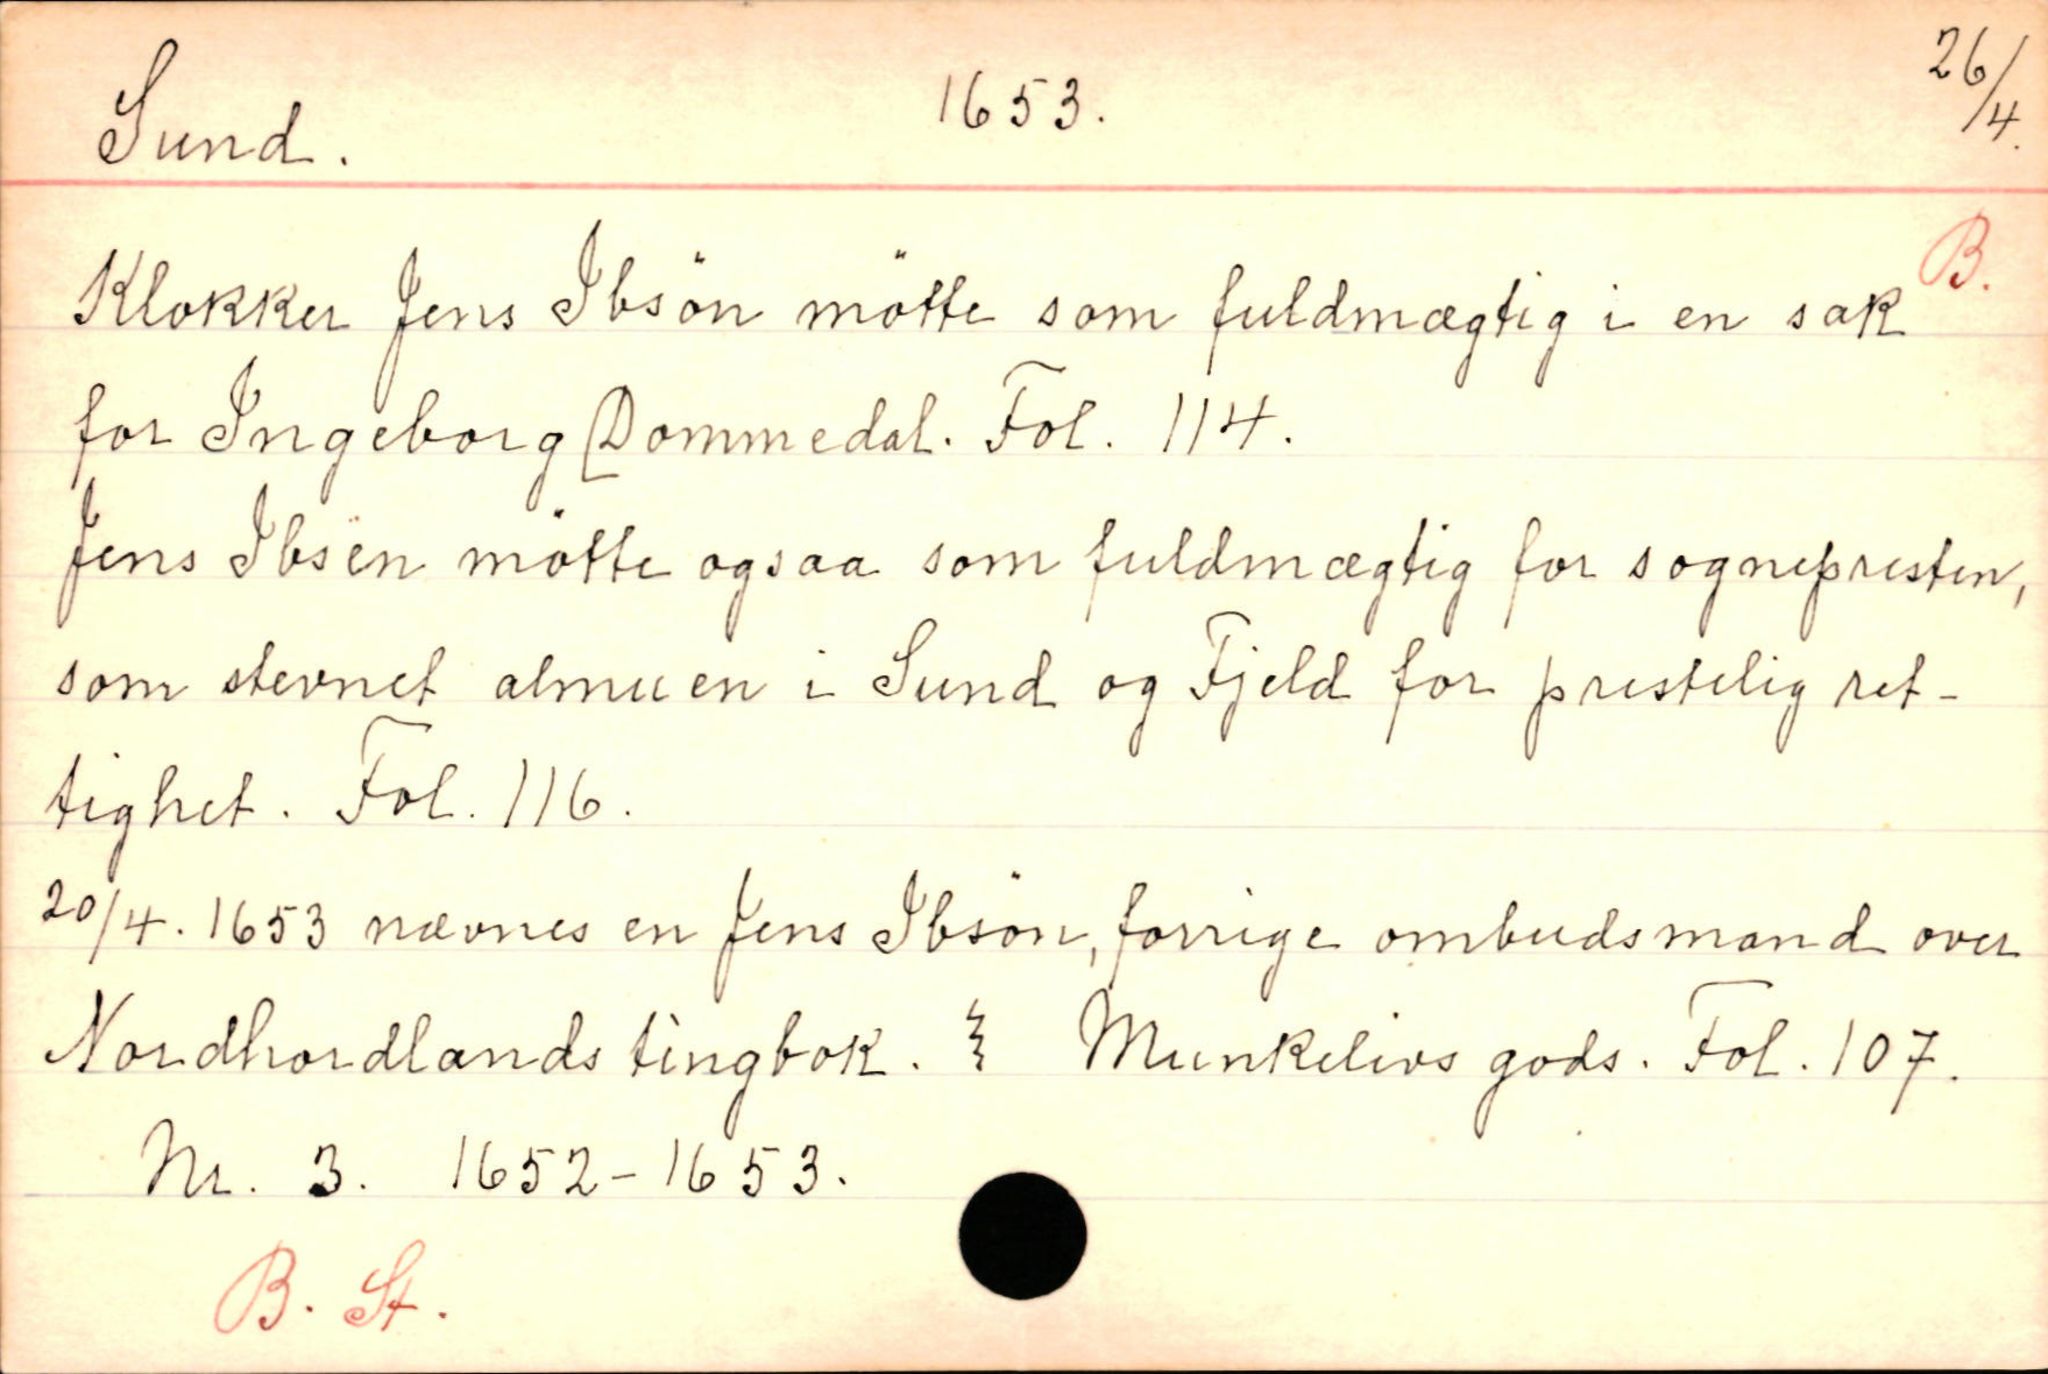 Sund. 1653. 26/4.
B.
Klokker Jens Ibsön mötte som fuldmægtig i en sak
for Ingeborg Dommedal. Fol. 114.
Jens Ibsen mötte ogsaa som fuldmægtig for sognepresten,
som stevnet almuen i Sund og Fjeld for prestelig ret-
tighet. Fol. 116.
20/4. 1653 nævnes en Jens Ibsön, forrige ombudsmand over
Nordhordlands tingbok. Munkelivs gods. Fol. 107.
Nr. 3. 1652-1653.
B. St.